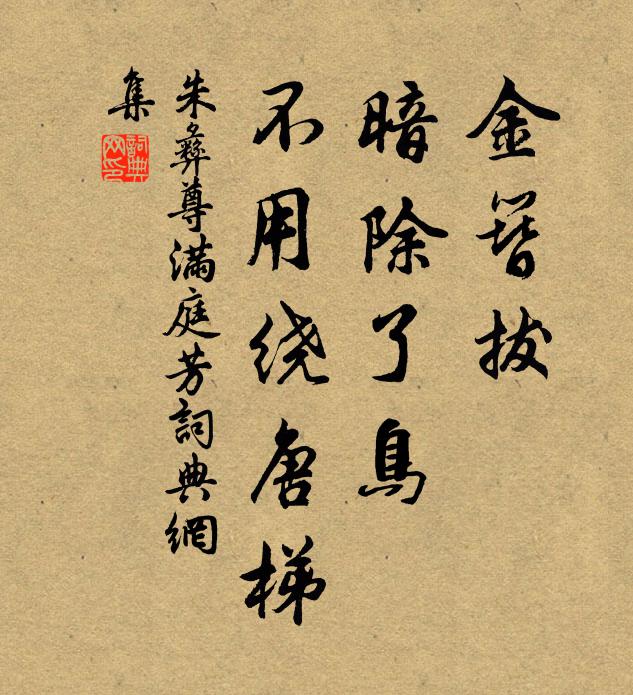 金簪拔
暗除了鳥
不用绕唐梯
朱彝尊滿庭芳詞典網
集
詞典
网印